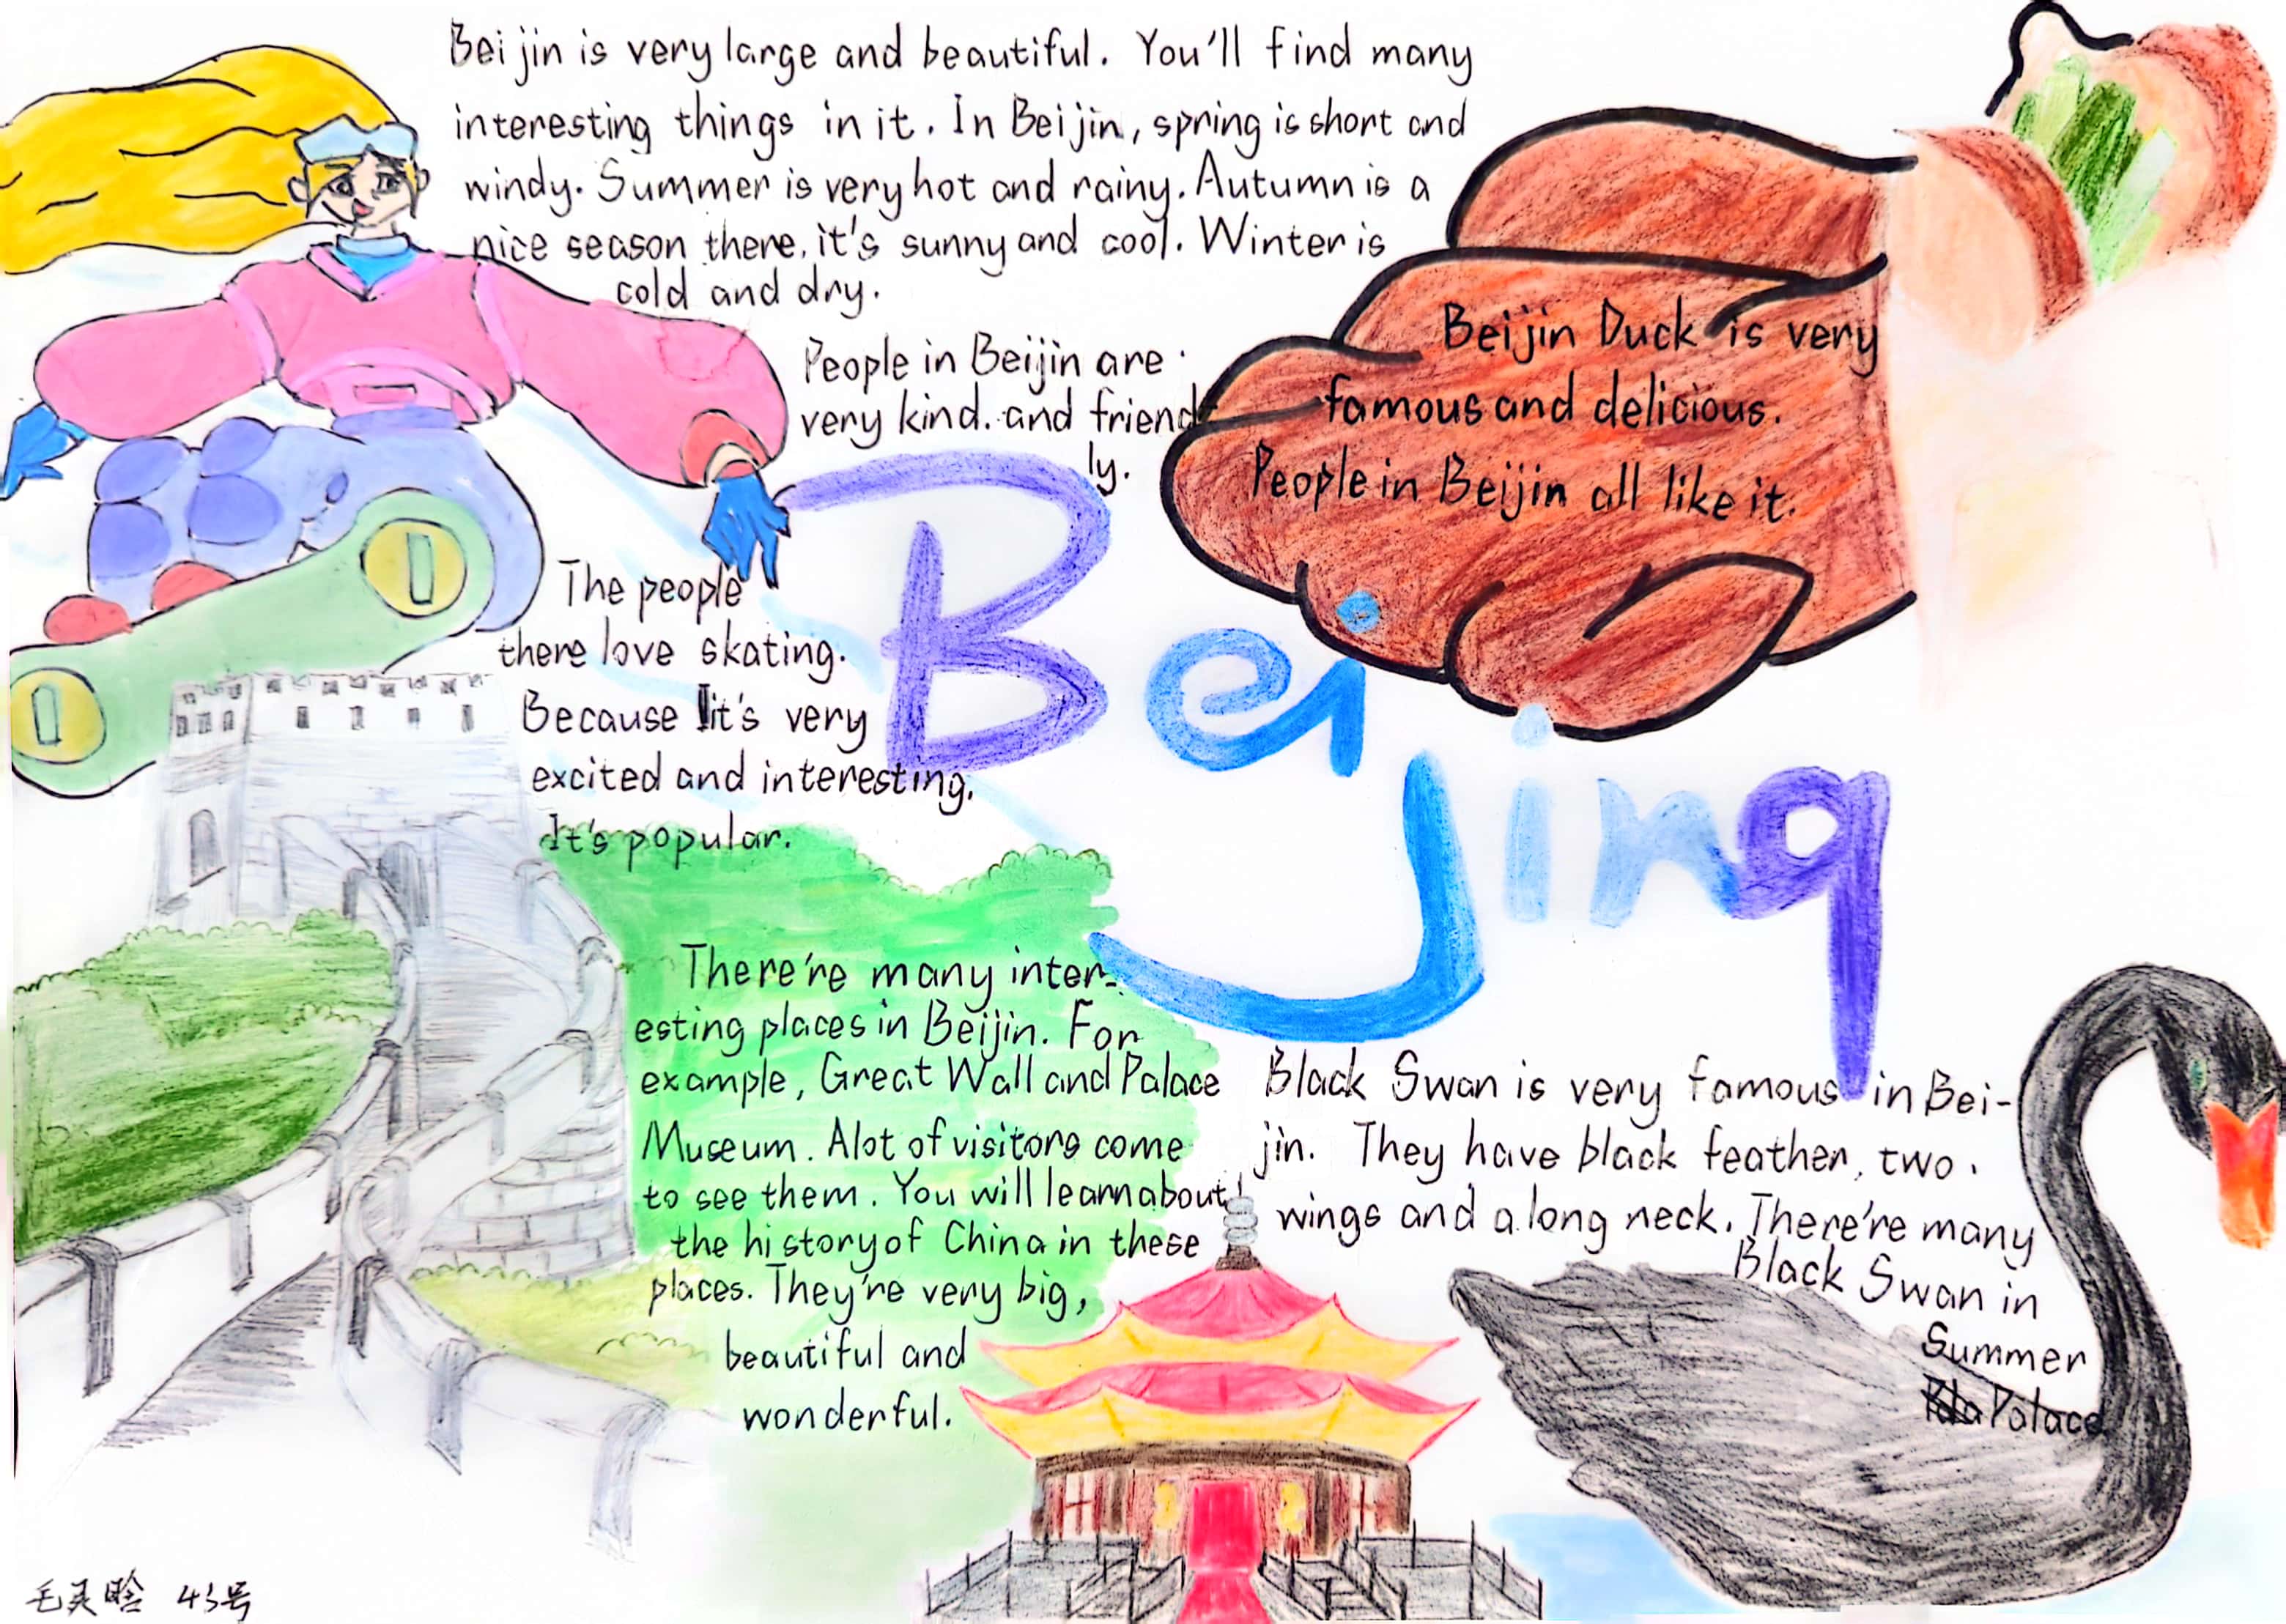 Beijin is very large and beautiful. You'll find many
interesting things in it. In Beijin, spring is short and
windy. Summer is very hot and rainy. Autumn is a
nice season there, it's sunny and cool. Winter is
cold and dry.
People in Beijin are
very kind. and friend
ly.
Beijin Duck is very
famous and delicious.
People in Beijin all like it.
Beijing
The people
there love skating.
Because it's very
excited and interesting.
It's popular.
There're many inter-
esting places in Beijin. For
example, Great Wall and Palace
Museum. Alot of visitors come
to see them. You will learn about
the history of China in these
places. They're very big,
beautiful and
wonderful.
Black Swan is very famous in Bei-
jin. They have black feather, two
wings and a long neck. There're many
Black Swan in
Summer
Palace
毛灵晗 43号